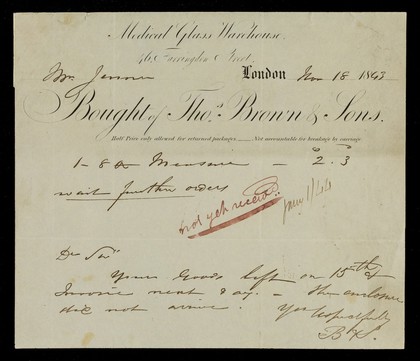 Medical Glass Warehouse,
46, Farringdon Street,
London Nov 18 1843
Bought of Thos. Brown & Sons.
Half Price only allowed for returned packages. Not accountable for breakage by carriage
1 - 8 oz Measure - 2.3
wait further orders
not yet recd.
Jany 1/44
Dr Sir
Yours Goods left on 15th &
Invoice next day. - the enclosure
did not arrive. Yrs respectfully
B & S.